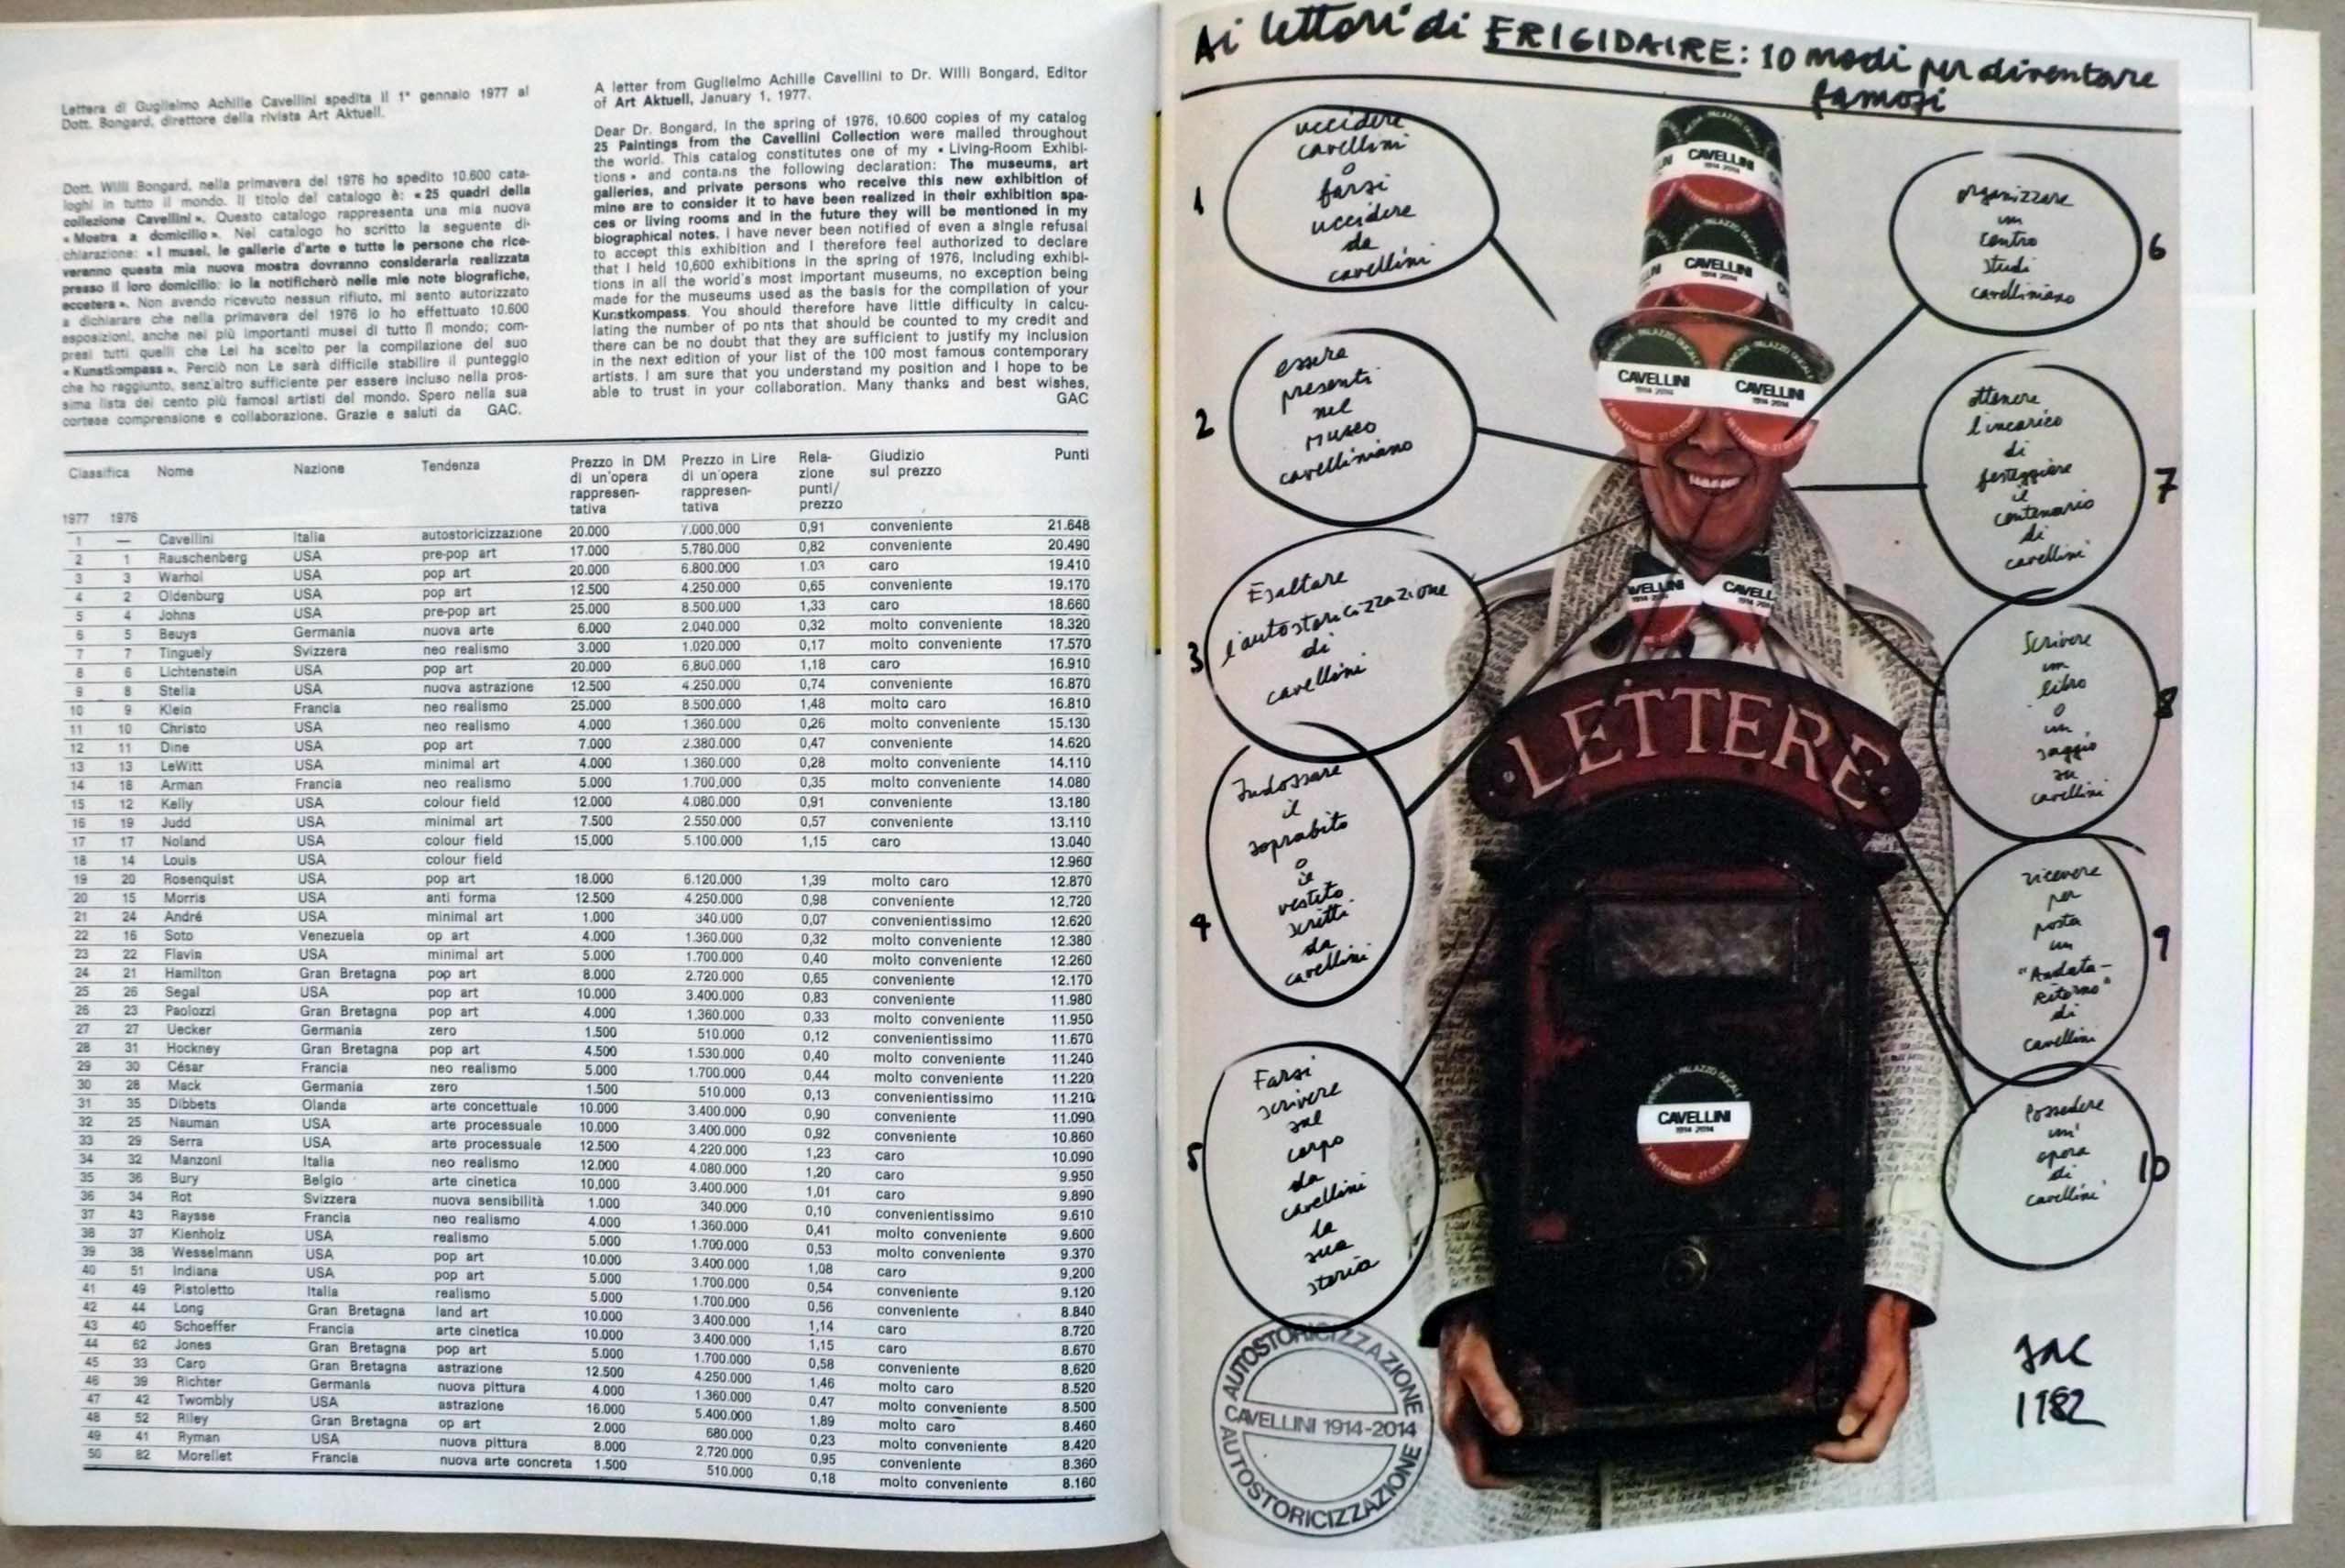 Lettera di Guglielmo Achille Cavellini spedita il 1° gennaio 1977 al
Dott. Bongard, direttore della rivista Art Aktuell.
Dott. Willi Bongard, nella primavera del 1976 ho spedito 10.600 cata-
loghi in tutto il mondo. Il titolo del catalogo è: « 25 quadri della
collezione Cavellini ». Questo catalogo rappresenta una mia nuova
« Mostra a domicilio ». Nel catalogo ho scritto la seguente di-
chiarazione: « I musei, le gallerie d'arte e tutte le persone che rice-
veranno questa mia nuova mostra dovranno considerarla realizzata
presso il loro domicilio: io la notificherò nelle mie note biografiche,
eccetera ». Non avendo ricevuto nessun rifiuto, mi sento autorizzato
a dichiarare che nella primavera del 1976 io ho effettuato 10.600
esposizioni, anche nei più importanti musei di tutto il mondo; com-
presi tutti quelli che Lei ha scelto per la compilazione del suo
« Kunstkompass ». Perciò non Le sarà difficile stabilire il punteggio
che ho raggiunto, senz'altro sufficiente per essere incluso nella pros-
sima lista dei cento più famosi artisti del mondo. Spero nella sua
cortese comprensione e collaborazione. Grazie e saluti da GAC.
A letter from Guglielmo Achille Cavellini to Dr. Willi Bongard, Editor
of Art Aktuell, January 1, 1977.
Dear Dr. Bongard, in the spring of 1976, 10.600 copies of my catalog
25 Paintings from the Cavellini Collection were mailed throughout
the world. This catalog constitutes one of my « Living-Room Exhibi-
tions » and contains the following declaration: The museums, art
galleries, and private persons who receive this new exhibition of
mine are to consider it to have been realized in their exhibition spa-
ces or living rooms and in the future they will be mentioned in my
biographical notes. I have never been notified of even a single refusal
to accept this exhibition and I therefore feel authorized to declare
that I held 10,600 exhibitions in the spring of 1976, including exhibi-
tions in all the world's most important museums, no exception being
made for the museums used as the basis for the compilation of your
Kunstkompass. You should therefore have little difficulty in calcu-
lating the number of po nts that should be counted to my credit and
there can be no doubt that they are sufficient to justify my inclusion
in the next edition of your list of the 100 most famous contemporary
artists. I am sure that you understand my position and I hope to be
able to trust in your collaboration. Many thanks and best wishes,
GAC
Classifica Nome Nazione Tendenza Prezzo in DM di un'opera rappresen-tativa Prezzo in Lire di un'opera rappresen-tativa Rela-zione punti/ prezzo Giudizio sul prezzo Punti
1977 1976
1 — Cavellini Italia autostoricizzazione 20.000 7.000.000 0,91 conveniente 21.648
2 1 Rauschenberg USA pre-pop art 17.000 5.780.000 0,82 conveniente 20.490
3 3 Warhol USA pop art 20.000 6.800.000 1.03 caro 19.410
4 2 Oldenburg USA pop art 12.500 4.250.000 0,65 conveniente 19.170
5 4 Johns USA pre-pop art 25.000 8.500.000 1,33 caro 18.660
6 5 Beuys Germania nuova arte 6.000 2.040.000 0,32 molto conveniente 18.320
7 7 Tinguely Svizzera neo realismo 3.000 1.020.000 0,17 molto conveniente 17.570
8 6 Lichtenstein USA pop art 20.000 6.800.000 1,18 caro 16.910
9 8 Stella USA nuova astrazione 12.500 4.250.000 0,74 conveniente 16.870
10 9 Klein Francia neo realismo 25.000 8.500.000 1,48 molto caro 16.810
11 10 Christo USA neo realismo 4.000 1.360.000 0,26 molto conveniente 15.130
12 11 Dine USA pop art 7.000 2.380.000 0,47 conveniente 14.620
13 13 LeWitt USA minimal art 4.000 1.360.000 0,28 molto conveniente 14.110
14 18 Arman Francia neo realismo 5.000 1.700,000 0,35 molto conveniente 14.080
15 12 Kelly USA colour field 12.000 4.080.000 0,91 conveniente 13.180
16 19 Judd USA minimal art 7.500 2.550.000 0,57 conveniente 13.110
17 17 Noland USA colour field 15.000 5.100.000 1,15 caro 13.040
18 14 Louis USA colour field 12.960
19 20 Rosenquist USA pop art 18.000 6.120.000 1,39 molto caro 12.870
20 15 Morris USA anti forma 12.500 4.250.000 0,98 conveniente 12.720
21 24 André USA minimal art 1.000 340.000 0,07 convenientissimo 12.620
22 16 Soto Venezuela op art 4.000 1.360.000 0,32 molto conveniente 12.380
23 22 Flavin USA minimal art 5.000 1.700.000 0,40 molto conveniente 12.260
24 21 Hamilton Gran Bretagna pop art 8.000 2.720.000 0,65 conveniente 12.170
25 26 Segal USA pop art 10.000 3.400.000 0,83 conveniente 11.980
26 23 Paolozzi Gran Bretagna pop art 4.000 1.360.000 0,33 molto conveniente 11.950
27 27 Uecker Germania zero 1.500 510.000 0,12 convenientissimo 11.670
28 31 Hockney Gran Bretagna pop art 4.500 1.530.000 0,40 molto conveniente 11.240
29 30 César Francia neo realismo 5.000 1.700.000 0,44 molto conveniente 11.220
30 28 Mack Germania zero 1.500 510.000 0,13 convenientissimo 11.210
31 35 Dibbets Olanda arte concettuale 10.000 3.400.000 0,90 conveniente 11.090
32 25 Nauman USA arte processuale 10.000 3.400.000 0,92 conveniente 10.860
33 29 Serra USA arte processuale 12.500 4.220.000 1,23 caro 10.090
34 32 Manzoni Italia neo realismo 12.000 4.080.000 1,20 caro 9.950
35 36 Bury Belgio arte cinetica 10,000 3.400.000 1,01 caro 9.890
36 34 Rot Svizzera nuova sensibilità 1.000 340.000 0,10 convenientissimo 9.610
37 43 Raysse Francia neo realismo 4.000 1.360.000 0,41 molto conveniente 9.600
38 37 Kienholz USA realismo 5.000 1.700.000 0,53 molto conveniente 9.370
39 38 Wesselmann USA pop art 10.000 3.400.000 1,08 caro 9,200
40 51 Indiana USA pop art 5.000 1.700.000 0,54 conveniente 9.120
41 49 Pistoletto Italia realismo 5.000 1.700.000 0,56 conveniente 8.840
42 44 Long Gran Bretagna land art 10.000 3.400.000 1,14 caro 8.720
43 40 Schoeffer Francia arte cinetica 10.000 3.400.000 1,15 caro 8.670
44 62 Jones Gran Bretagna pop art 5.000 1.700.000 0,58 conveniente 8.620
45 33 Caro Gran Bretagna astrazione 12.500 4.250.000 1,46 molto caro 8.520
46 39 Richter Germania nuova pittura 4.000 1.360.000 0,47 molto conveniente 8.500
47 42 Twombly USA astrazione 16.000 5.400.000 1,89 molto caro 8.460
48 52 Riley Gran Bretagna op art 2.000 680.000 0,23 molto conveniente 8.420
49 41 Ryman USA nuova pittura 8.000 2.720.000 0,95 conveniente 8.360
50 82 Morellet Francia nuova arte concreta 1.500 510.000 0,18 molto conveniente 8.160
Ai lettori di FRIGIDAIRE: 10 modi per diventare
famosi
1
uccidere
cavellini
o
farsi
uccidere
da
cavellini
2
essere
presenti
nel
museo
cavelliniano
3
Esaltare
l'autostoricizzazione
di
cavellini
4
Indossare
il
soprabito
o
il
vestito
scritti
da
cavellini
5
Farsi
scrivere
sul
corpo
da
cavellini
la
sua
storia
6
organizzare
un
centro
studi
cavelliniano
7
ottenere
l'incarico
di
festeggiare
il
centenario
di
cavellini
8
Scrivere
un
libro
o
un
saggio
su
cavellini
9
ricevere
per
posta
un
"Andata-
Ritorno"
di
cavellini
10
Possedere
un'
opera
di
cavellini
CAVELLINI
1914 2014
CAVELLINI
CAVELLINI
1914 2014
CAVELLINI
1914 2014
VELLINI
CAVELL
LETTERE
VENEZIA - PALAZZO DUCALE
CAVELLINI
1914 2014
7 SETTEMBRE 27 OTTOBRE
AUTOSTORICIZZAZIONE
CAVELLINI 1914-2014
AUTOSTORICIZZAZIONE
GAC
1982